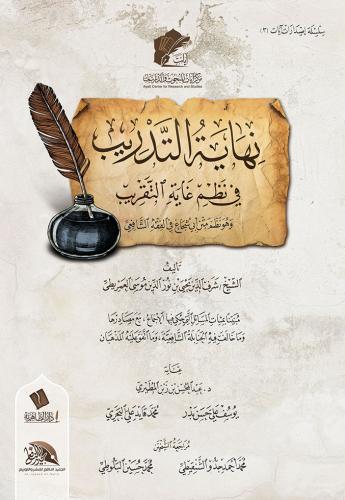 سلسلة إصدارات آيات (٣١)
آيات
مركز آيات للبحوث والدراسات
Ayat Center for Research and Studies
نِهَايَةُ التَّدْرِيب
فِي نَظْمِ غَايَةِ التَّقْرِيب
وَهُوَ نَظْمُ مَتْنِ أَبِي شُجَاعٍ فِي الفِقْهِ الشَّافِعِيِّ
تأليف
الشيخ: شرف الدين يحيى بن نور الدين موسى العمريطي
مُبَيَّنًا عَلَيْهِ المسائل التي حكي فيها الإجماع، مع مصادرها
وما خالف فيه الحنابلة الشافعية، وما اتفق عليه المذهبان
عناية
د. عبد المحسن بن زبن المطيري
يوسف علي حسن بدر
محمد قايد علي البحري
مراجعة الشيخين
محمد أحمد جدو الشنقيطي
محمد حسين البالوطي